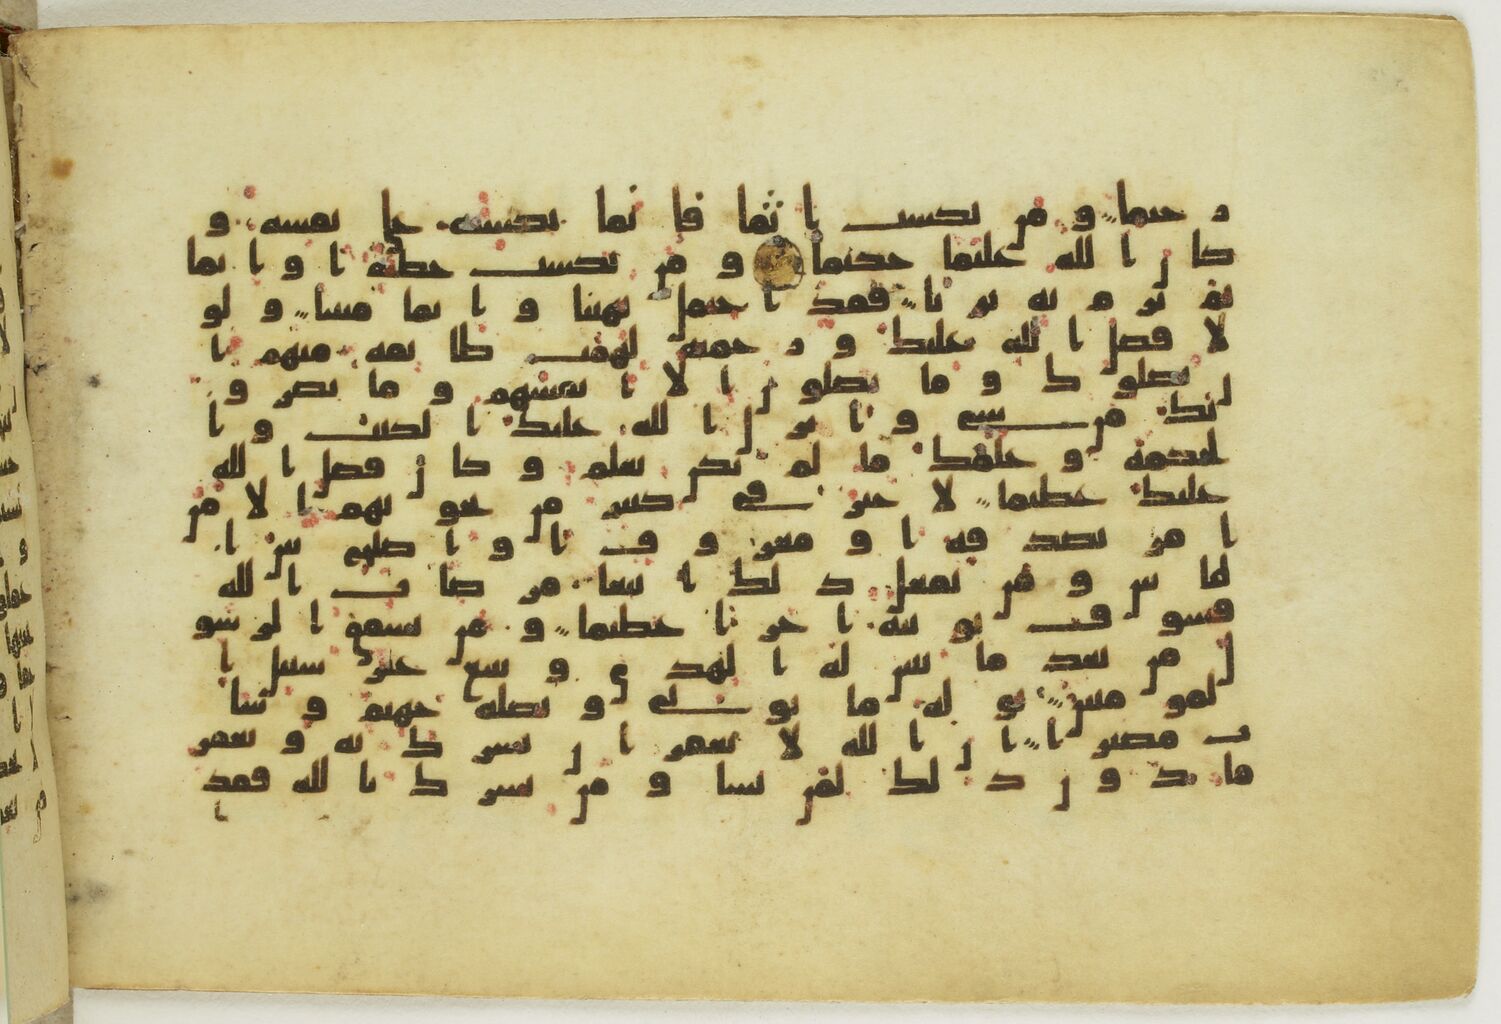 ر حيما و من يكسب ا ثما فا نما يكسبه علی نفسه و
كا ن ا لله عليما حكيما و من يكسب خطية ا و ا ثما
ثم ير م به بر يا فقد ا حتمل بهتنا و ا ثما مبينا و لو
لا فضل ا لله عليك و ر حمته لهمت طا ئفه منهم ا
ن يضلو ك و ما يضلو ن ا لا ا نفسهم و ما يضر و
نك من شی و ا نز ل ا لله عليك ا لكتب و ا
لحكمة و علمك ما لم تكن تعلم و كا ن فضل ا لله
عليك عظيما لا خير فی كثير من نجو يهم ا لا من
ا مر بصد قة ا و معر و ف ا و ا صلح بين ا
لنا س و من يفعل ذ لك ا بتغا مر ضا ت ا لله
فسو ف نو تيه ا جر ا عظيما و من يشقق ا لر سو
ل من بعد ما تبين له ا لهد ی و يتبع غير سبيل ا
لمو منين نو له ما تو لی و نصله جهنم و سا
ت مصير ا ا ن ا لله لا يغفر ا ن يشر ك به و يغفر
ما د و ن ذ لك لمن يشا و من يشر ك با لله فقد